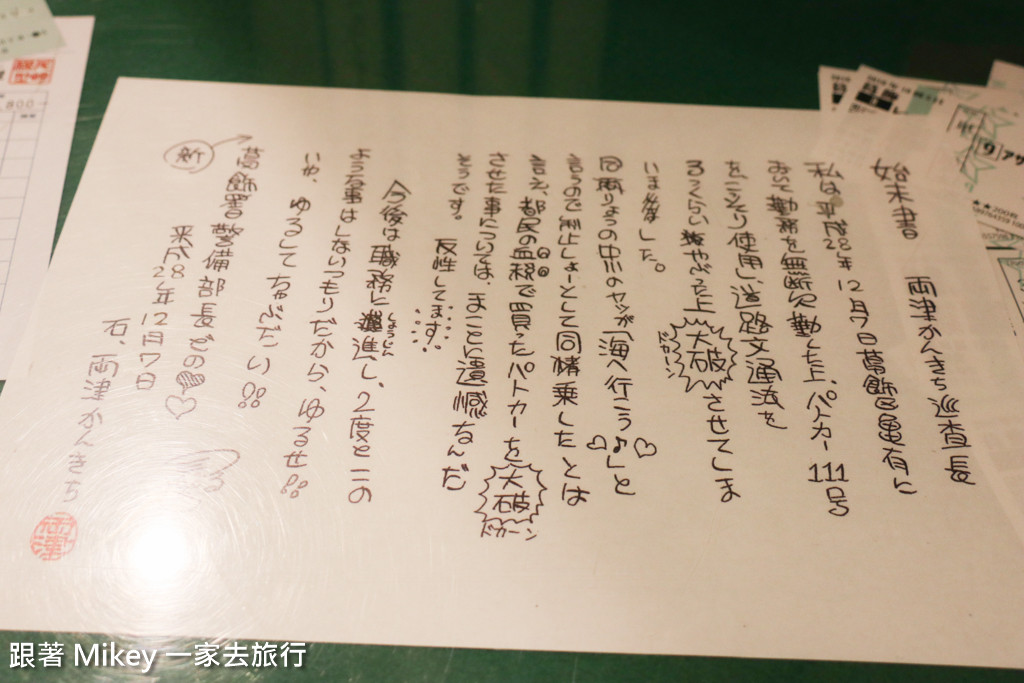 始末書　両津かんきち巡査長
私は平成28年12月7日葛飾区亀有に
おて勤務を無断欠勤した上、パトカー111号
をこっそり使用し、道路交通法を
るくらい
上大破させてしま
ドカーン
いました。
同僚りょうの中川のヤツが「海へ行こう♪」と
言うので制止しょーとして同情乗したとは
言え、都民の血税で買ったパトカーを大破
ドカーン
させた事については、まことに遺憾なんだ
そうです。反性してます。
今後は職務に進し、2度とこの
しょうじん
ような事はしないつもりだから、ゆるせ!!
いや、ゆるしてちょうだい!!
新
葛飾署警備部長どの
平成28年12月7日
右、両津かんきち
両津
800
アサ
★★200枚
跟著 Mikey 一家去旅行